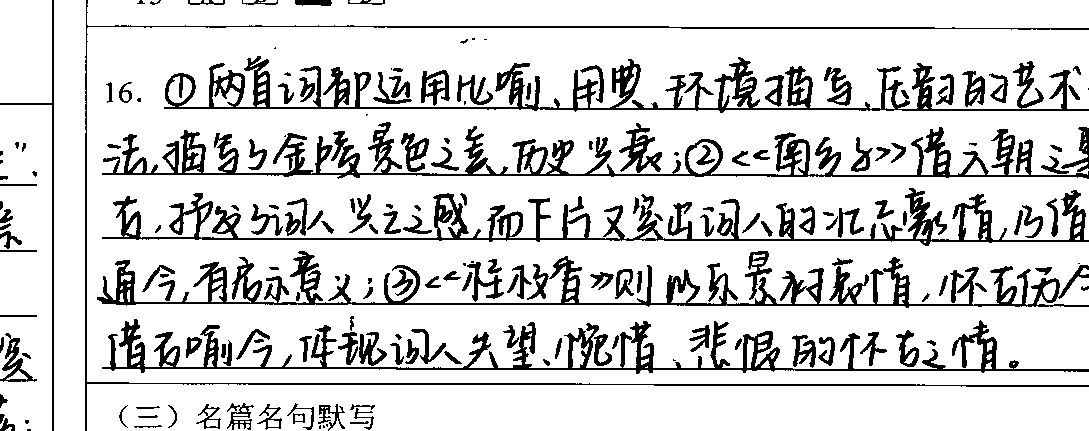 16. ①两首词都运用比喻、用典、环境描写、压韵的艺术
法,描写了金陵景色之美,历史兴衰;②<<南乡子>>借六朝之
古,抒发了词人兴亡之感,而下片又突出词人的壮志豪情,乃借
通今,有启示意义;③<<桂枝香>>则以乐景衬哀情,怀古伤今
借古喻今,体现词人失望、惋惜、悲恨的怀古之情。
(三)名篇名句默写